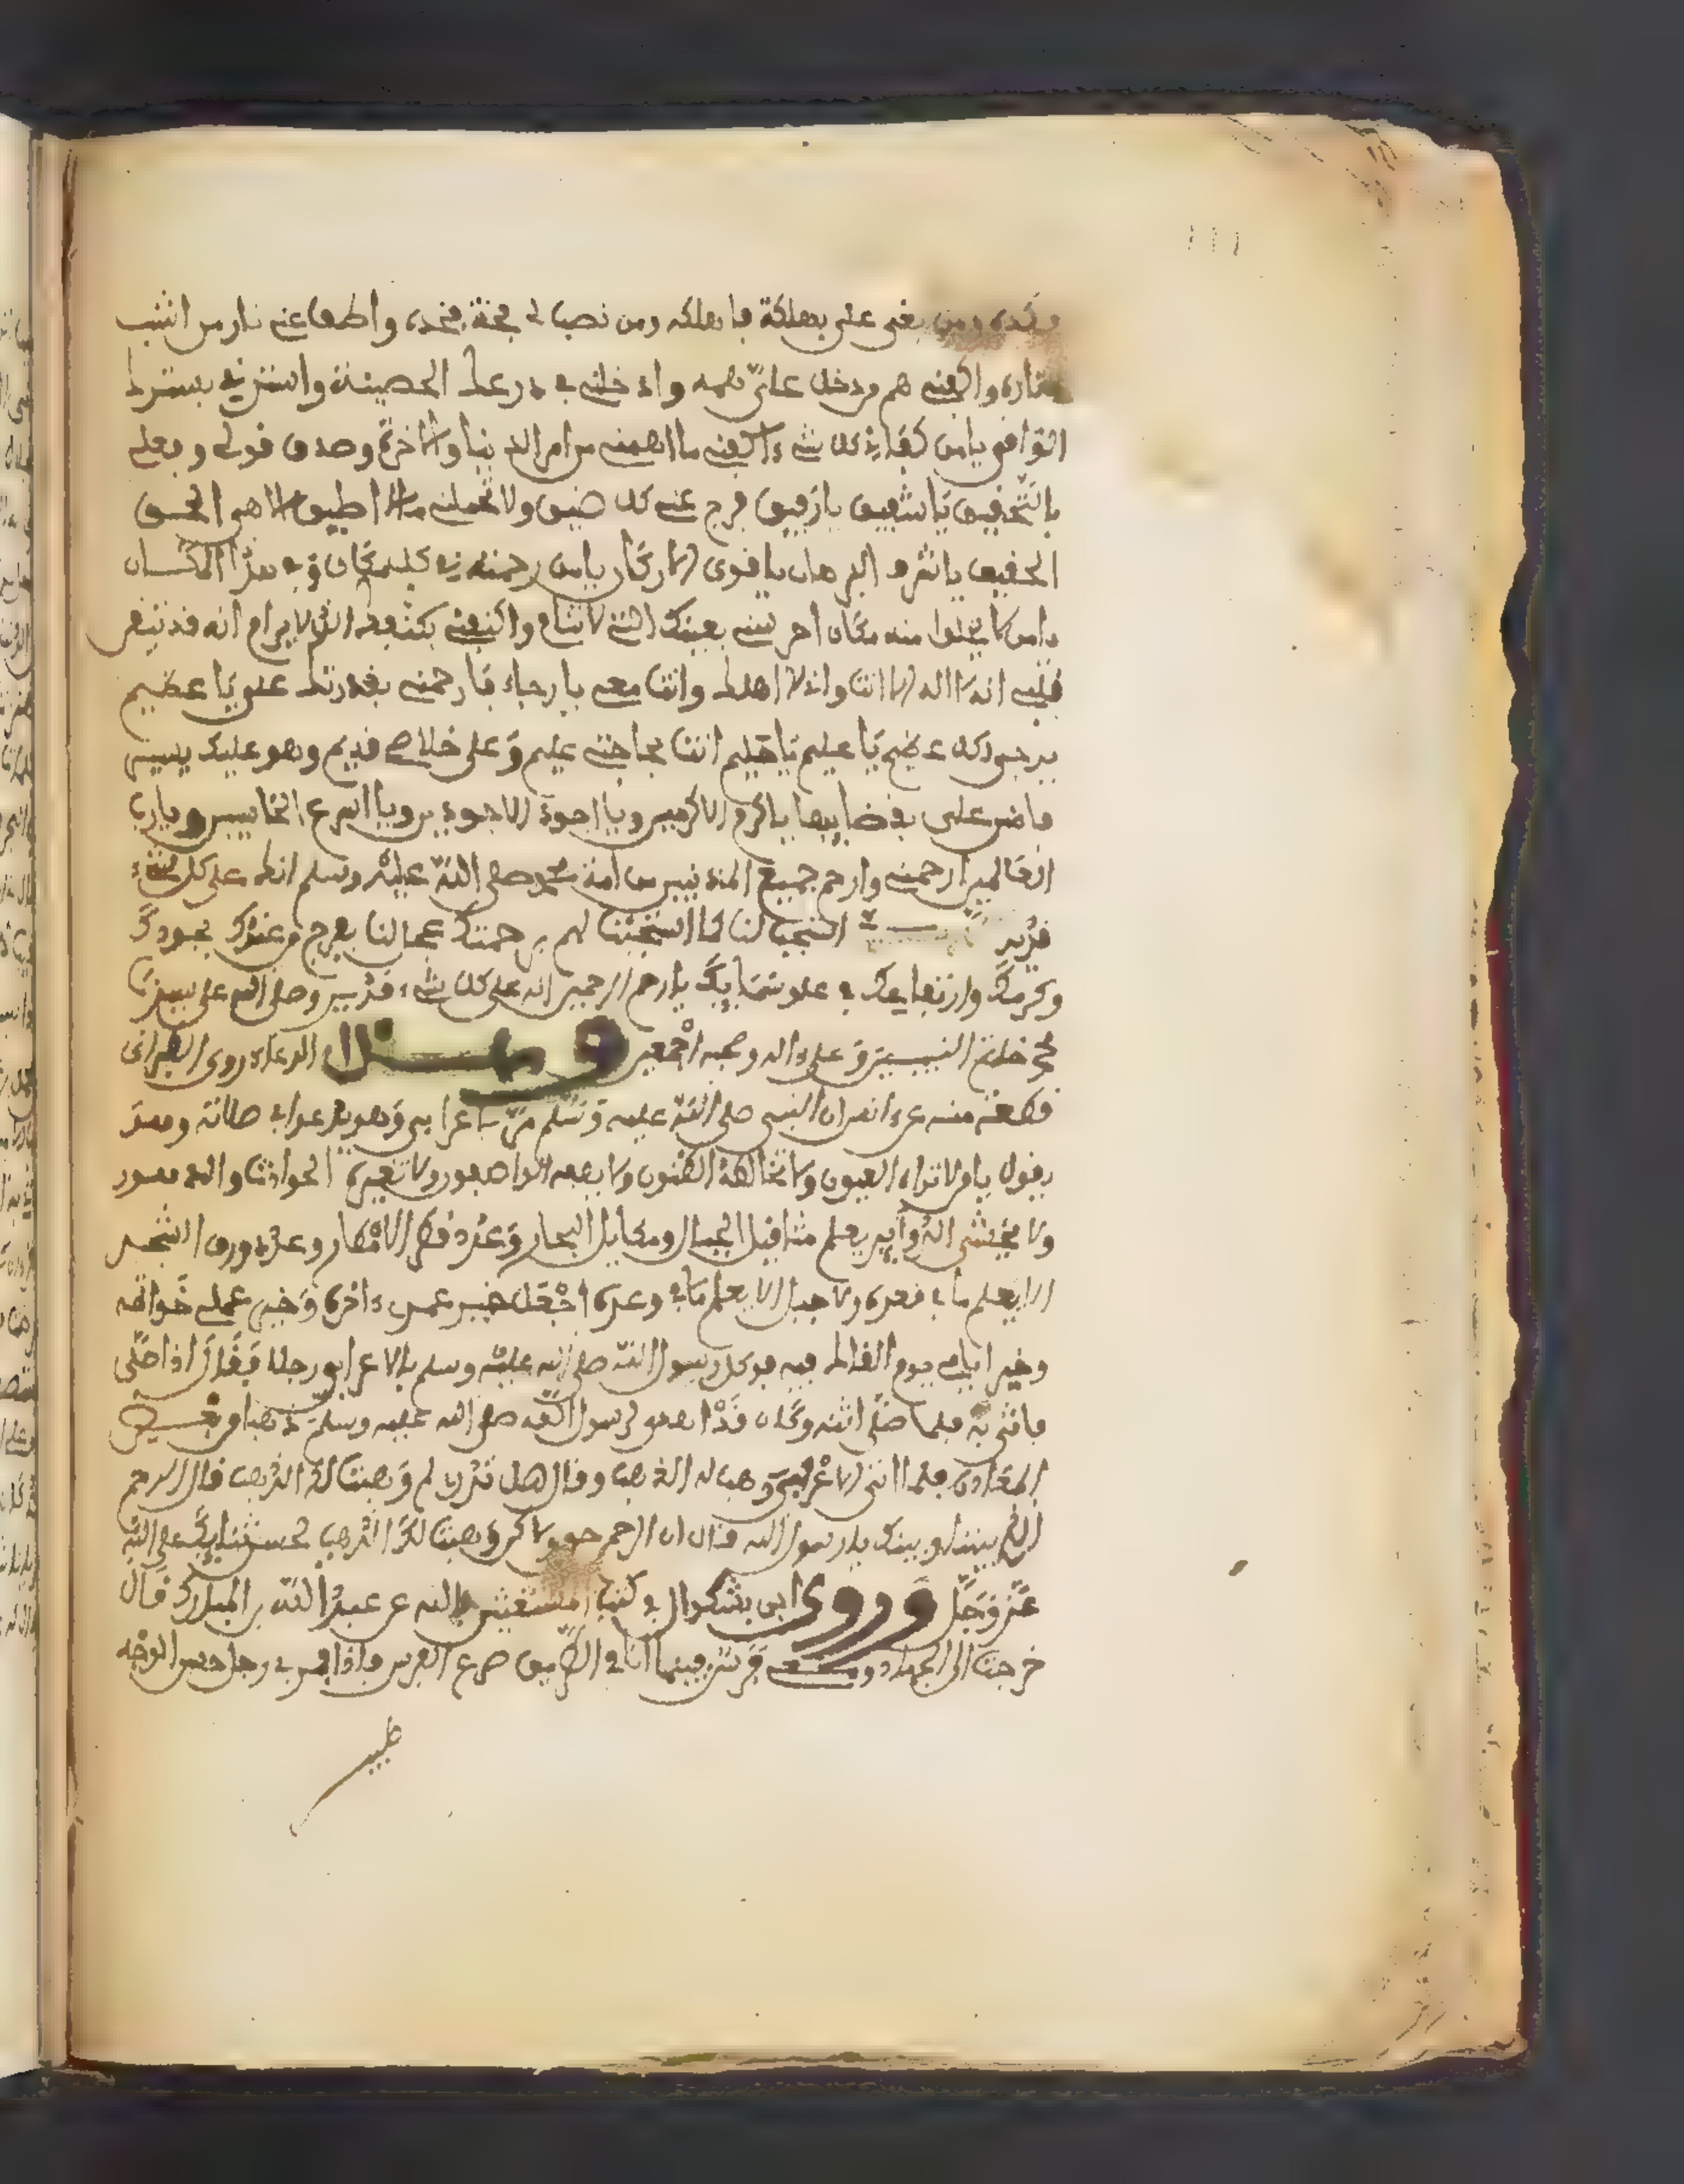 فكده ومن بغى علي بهلكة فاهلكه ومن نصب لي فخه فخده واطف عني نار من اشب
ناره واكفني هم من دخل علي همه وادخلني في درعك الحصينة واسترني بسترك
الواقي يامن كفاني كل شيء اكفني ما اهمني من امر الدنيا والاخرة وصدق قولي وفعلي
بالتحقيق يا شفيق يا رفيق فرج عني كل ضيق ولا تحملني ما لا اطيق الاهي الحق
الحقيق يا مشرق البرهان يا قوي الاركان يامن رحمته في كل مكان وفي هذا المكان
يامن لا يخلوا منه مكان احرسني بعينك التي لا تنام واكنفني بكنفك الذي لا يرام انه قد تيقن
قلبي انه لا اله الا انت واني لا اهلك وانت معي يا رجاءي فارحمني بقدرتك علي يا عظيم
يرجى لكل عظيم يا عليم يا حليم انت بحاجتي عليم وعلى خلاصي قديم وهو عليك يسير
فامنن علي بقضايها يا اكرم الاكرمين ويا اجود الاجودين ويا اسرع الحاسبين ويا رب
العالمين ارحمني وارحم جميع المذنبين من امة محمد صلى الله عليه وسلم انك على كل شيء
قدير استجب لنا كما استجبت لهم برحمتك عجل لنا بفرج من عندك بجودك
وكرمك وارتفاعك في علو سمايك يا ارحم الرحمين انك على كل شيء قدير وصلى الله على سيدنا
محمد خاتم النبيين وعلى ءاله وصحبه اجمعين وهذا الدعاء روى الطبراني
قطعة منه عن انس ان النبي صلى الله عليه وسلم مر باعرابي وهو يدعوا في صلاته وهو
يقول يا من لا تراه العيون ولا تخالطه الظنون ولا يصفه الواصفون ولا تغيره الحوادث والدهور
ولا يخشى الدواير يعلم مثاقيل الجبال ومكاييل البحار وعدد قطر الامطار وعدد ورق الشجر
الا يعلم ما في قعره ولا جبل الا يعلم ما في وعره اجعل خير عمري ءاخره وخير عملي خواتمه
وخير ايامي يوم القاك فيه فوكل رسول الله صلى الله عليه وسلم بالاعرابي رجلا فقال اذا صلى
فاتني به فلما صلى اتاه وكان قد اهدي لرسول الله صلى الله عليه وسلم ذهبا من بعض
المعادن فلما اتى الاعرابي وهب له الذهب وقال هل تدري لم وهبت لك الذهب قال الرحم
الذي بيننا وبينك يا رسول الله قال ان الرحم حق ولاكن وهبت لك الذهب لحسن ثنايك على الله
عز وجل وروى ابن بشكوال في كتب المستغيثين بالله عن عبد الله بن المبارك قال
خرجت الى الجهاد ومعي فرس فبينما انا في الطريق صرع الفرس فاذا مر بي رجل حسن الوجه
طيب